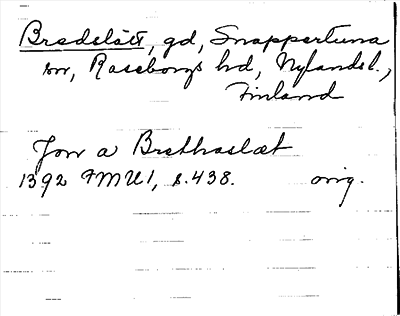 Bredslätt, gd, Snappertuna
sn, Raseborgs hd, Nylands l.,
Finland
Jow a Brethaslæt
1392 FMU 1, s. 438. orig.